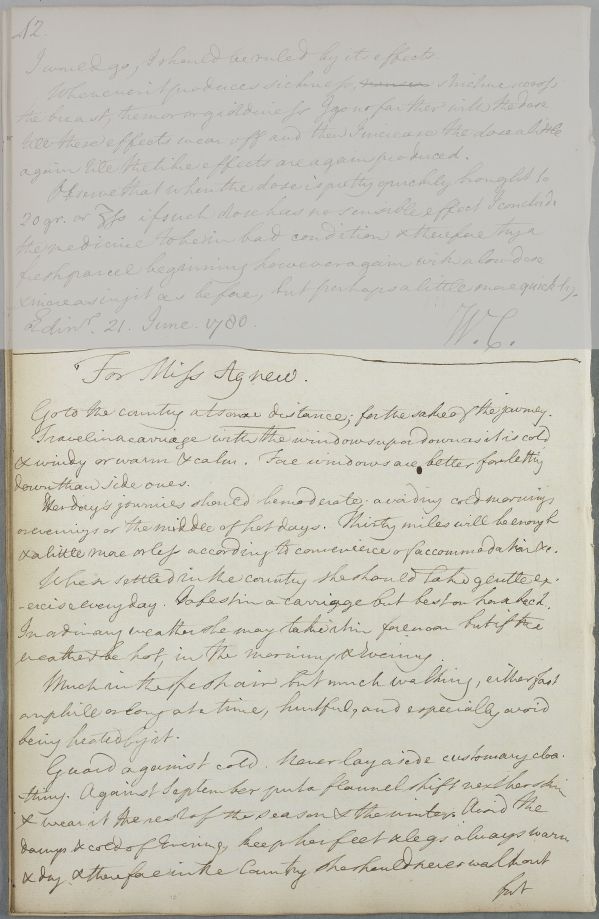 42.
I would go, I should be ruled by its effects.
Whenever it produces sickness, stricture across
the breast, tremor or giddiness I go no farther with the dose
till these effects wear off and then I increase the dose a little
again till the like effects are again produced.
Observe that when the dose is pretty quickly brought to
20 gr. or ʒss if such dose has no sensible effect I conclude
the medicine to be in bad condition & therefore try a
fresh parcel beginning however again with a low dose
& increasing it as before, but perhaps a little more quickly.
Edinr. 21. June. 1780.
W. C.
For Miss Agnew.
Go to the country at some distance; for the sake of the journey.
Travel in a carriage with the windows up or down as it is cold
& windy or warm & calm. Fore windows are better for letting
down than side ones.
Her day's journies should be moderate, avoiding cold mornings
or evenings or the middle of hot days. Thirty miles will be enough
& a little more or less according to convenience of accommodation &c.
When settled in the country she should take gentle ex-
-ercise every day. Safest in a carriage but best on horseback.
In ordinary weather she may take it in forenoon but if the
weather be hot, in the morning & Evening.
Much in the fresh air but much walking, either fast
or uphill or long at a time, hurtful, and especially avoid
being heated by it.
Guard against cold. Never lay aside customary cloa-
thing. Against September put a flannel shift next her skin
& wear it the rest of the season & the winter. Avoid the
damps & cold of Evening, keep her feet & legs always warm
& dry & therefore in the Country she should never walk out
but